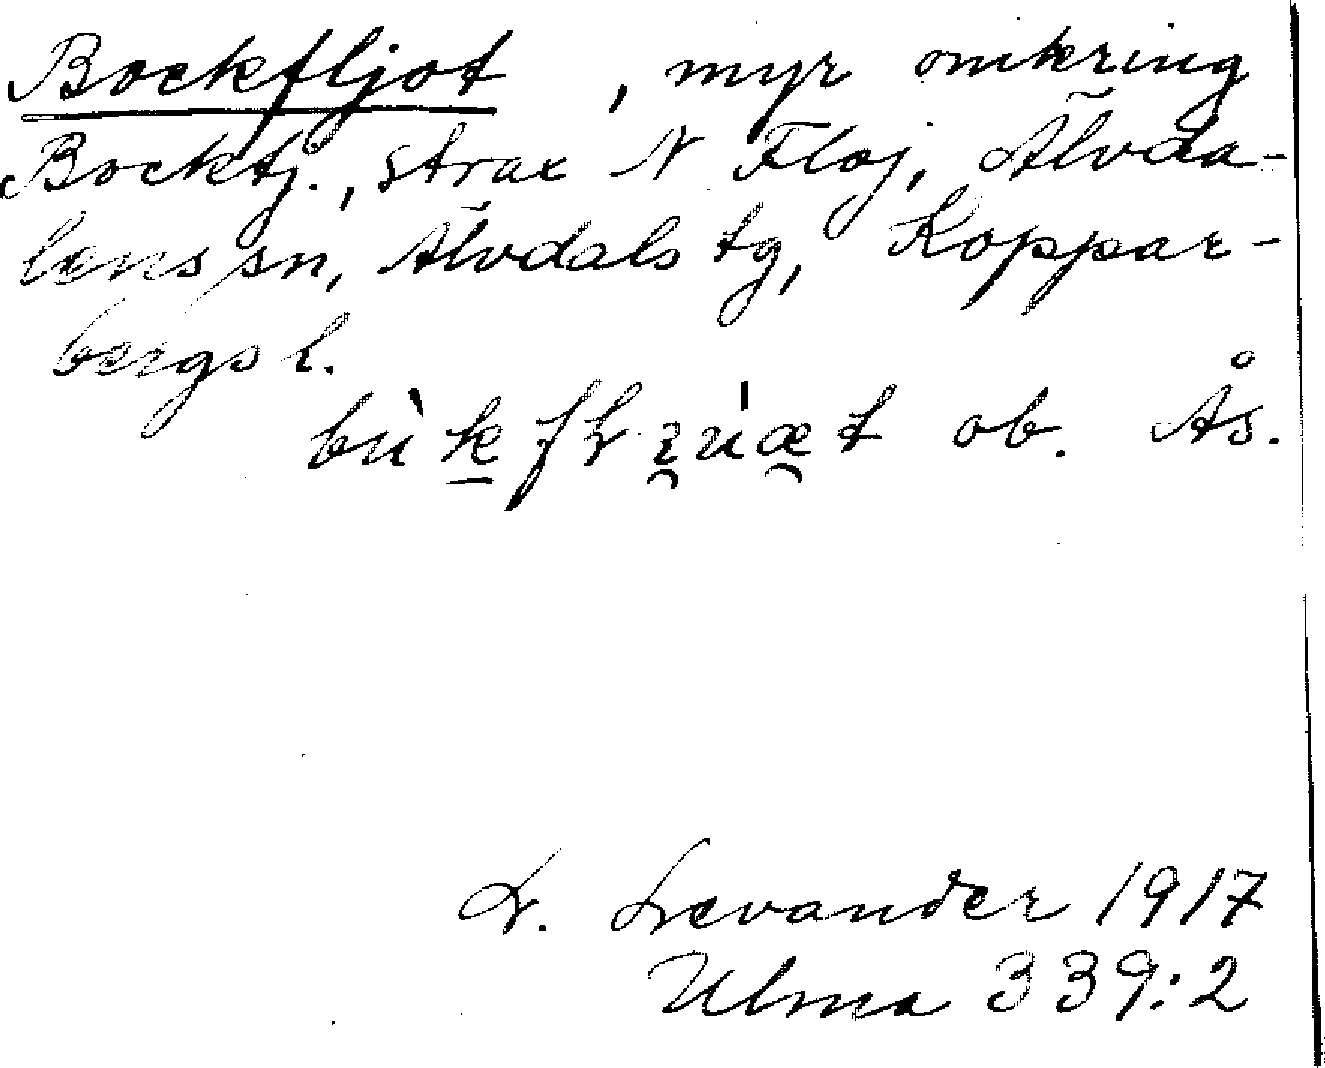 Bockfljot, myr omkring
Bocktj., strax N Floj, Älvda-
lens sn, Älvdals tg, Koppar-
bergs l.
ob. Ås.
L. Levander 1917
Ulma 339:2